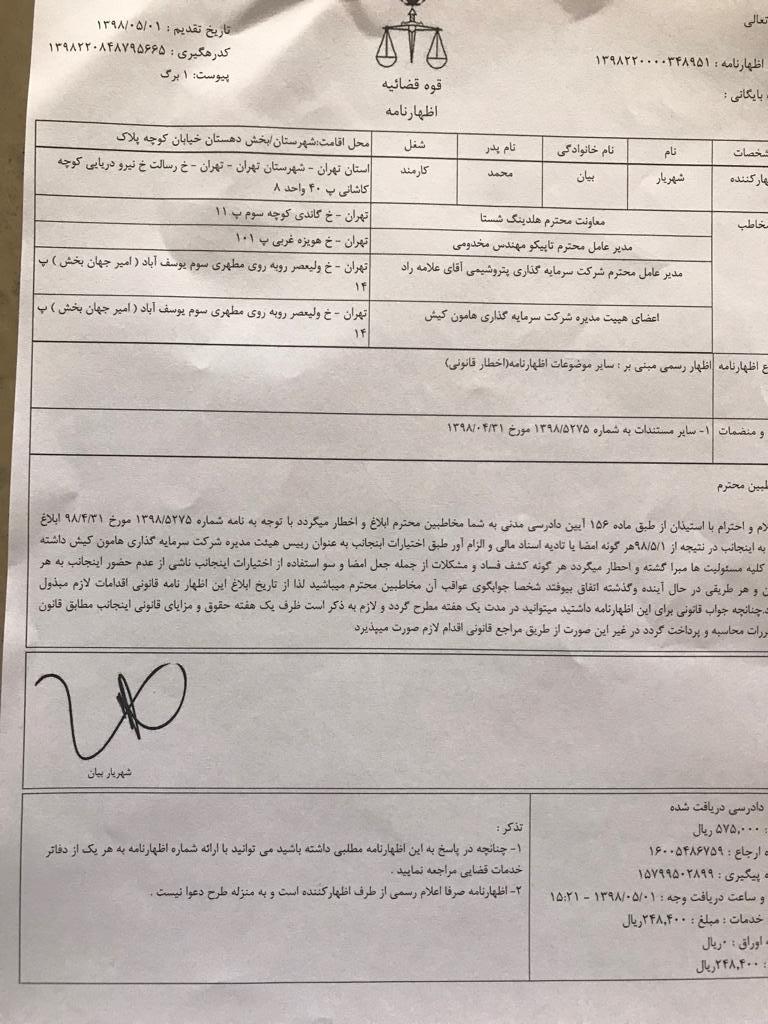 تعالی
تاریخ تقدیم : ۱۳۹۸/۰۵/۰۱
اظهارنامه : ۱۳۹۸۲۲۰۰۰۰۳۴۸۹۵۱
کدرهگیری : ۱۳۹۸۲۲۰۸۴۸۷۹۵۶۶۵
بایگانی :
پیوست: ۱ برگ
قوه قضائیه
اظهارنامه
شخصات نام نام خانوادگی نام پدر شغل محل اقامت:شهرستان/بخش دهستان خیابان کوچه پلاک
هارکننده شهریار بیان محمد کارمند استان تهران - شهرستان تهران - تهران - خ رسالت خ نیرو دریایی کوچه
کاشانی پ ۴۰ واحد ۸
مخاطب معاونت محترم هلدینگ شستا تهران - خ گاندی کوچه سوم پ ۱۱
مدیر عامل محترم تاپیکو مهندس مخدومی تهران - خ هویزه غربی پ ۱۰۱
مدیر عامل محترم شرکت سرمایه گذاری پتروشیمی آقای علامه راد تهران - خ ولیعصر روبه روی مطهری سوم یوسف آباد ( امیر جهان بخش ) پ
۱۴
اعضای هییت مدیره شرکت سرمایه گذاری هامون کیش تهران - خ ولیعصر روبه روی مطهری سوم یوسف آباد ( امیر جهان بخش ) پ
۱۴
ع اظهارنامه اظهار رسمی مبنی بر : سایر موضوعات اظهارنامه(اخطار قانونی)
و منضمات ۱- سایر مستندات به شماره ۱۳۹۸/۵۲۷۵ مورخ ۱۳۹۸/۰۴/۳۱
طبین محترم
لام و احترام با استیذان از طبق ماده ۱۵۶ آیین دادرسی مدنی به شما مخاطبین محترم ابلاغ و اخطار میگردد با توجه به نامه شماره ۱۳۹۸/۵۲۷۵ مورخ ۹۸/۴/۳۱ ابلاغ
به اینجانب در نتیجه از ۹۸/۵/۱هر گونه امضا یا تادیه اسناد مالی و الزام آور طبق اختیارات اینجانب به عنوان رییس هیئت مدیره شرکت سرمایه گذاری هامون کیش داشته
کلیه مسئولیت ها مبرا گشته و احطار میگردد هر گونه کشف فساد و مشکلات از جمله جعل امضا و سو استفاده از اختیارات اینجانب ناشی از عدم حضور اینجانب به هر
ن و هر طریقی در حال آینده وگذشته اتفاق بیوفتد شخصا جوابگوی عواقب آن مخاطبین محترم میباشید لذا از تاریخ ابلاغ این اظهار نامه قانونی اقدامات لازم مبذول
د.چنانچه جواب قانونی برای این اظهارنامه داشتید میتوانید در مدت یک هفته مطرح گردد و لازم به ذکر است ظرف یک هفته حقوق و مزایای قانونی اینجانب مطابق قانون
ررات محاسبه و پرداخت گردد در غیر این صورت از طریق مراجع قانونی اقدام لازم صورت میپذیرد
شهریار بیان
دادرسی دریافت شده
: ۵۷۵,۰۰۰ ریال
ه ارجاع : ۱۶۰۰۵۴۸۶۷۵۹
ه پیگیری : ۱۵۷۹۹۵۰۲۸۹۹
و ساعت دریافت وجه : ۱۳۹۸/۰۵/۰۱ - ۱۵:۲۱
خدمات : مبلغ : ۲۴۸,۴۰۰ریال
ه اوراق : ۰ریال
: ۲۴۸,۴۰۰ریال
تذکر :
۱- چنانچه در پاسخ به این اظهارنامه مطلبی داشته باشید می توانید با ارائه شماره اظهارنامه به هر یک از دفاتر
خدمات قضایی مراجعه نمایید .
۲- اظهارنامه صرفا اعلام رسمی از طرف اظهارکننده است و به منزله طرح دعوا نیست .